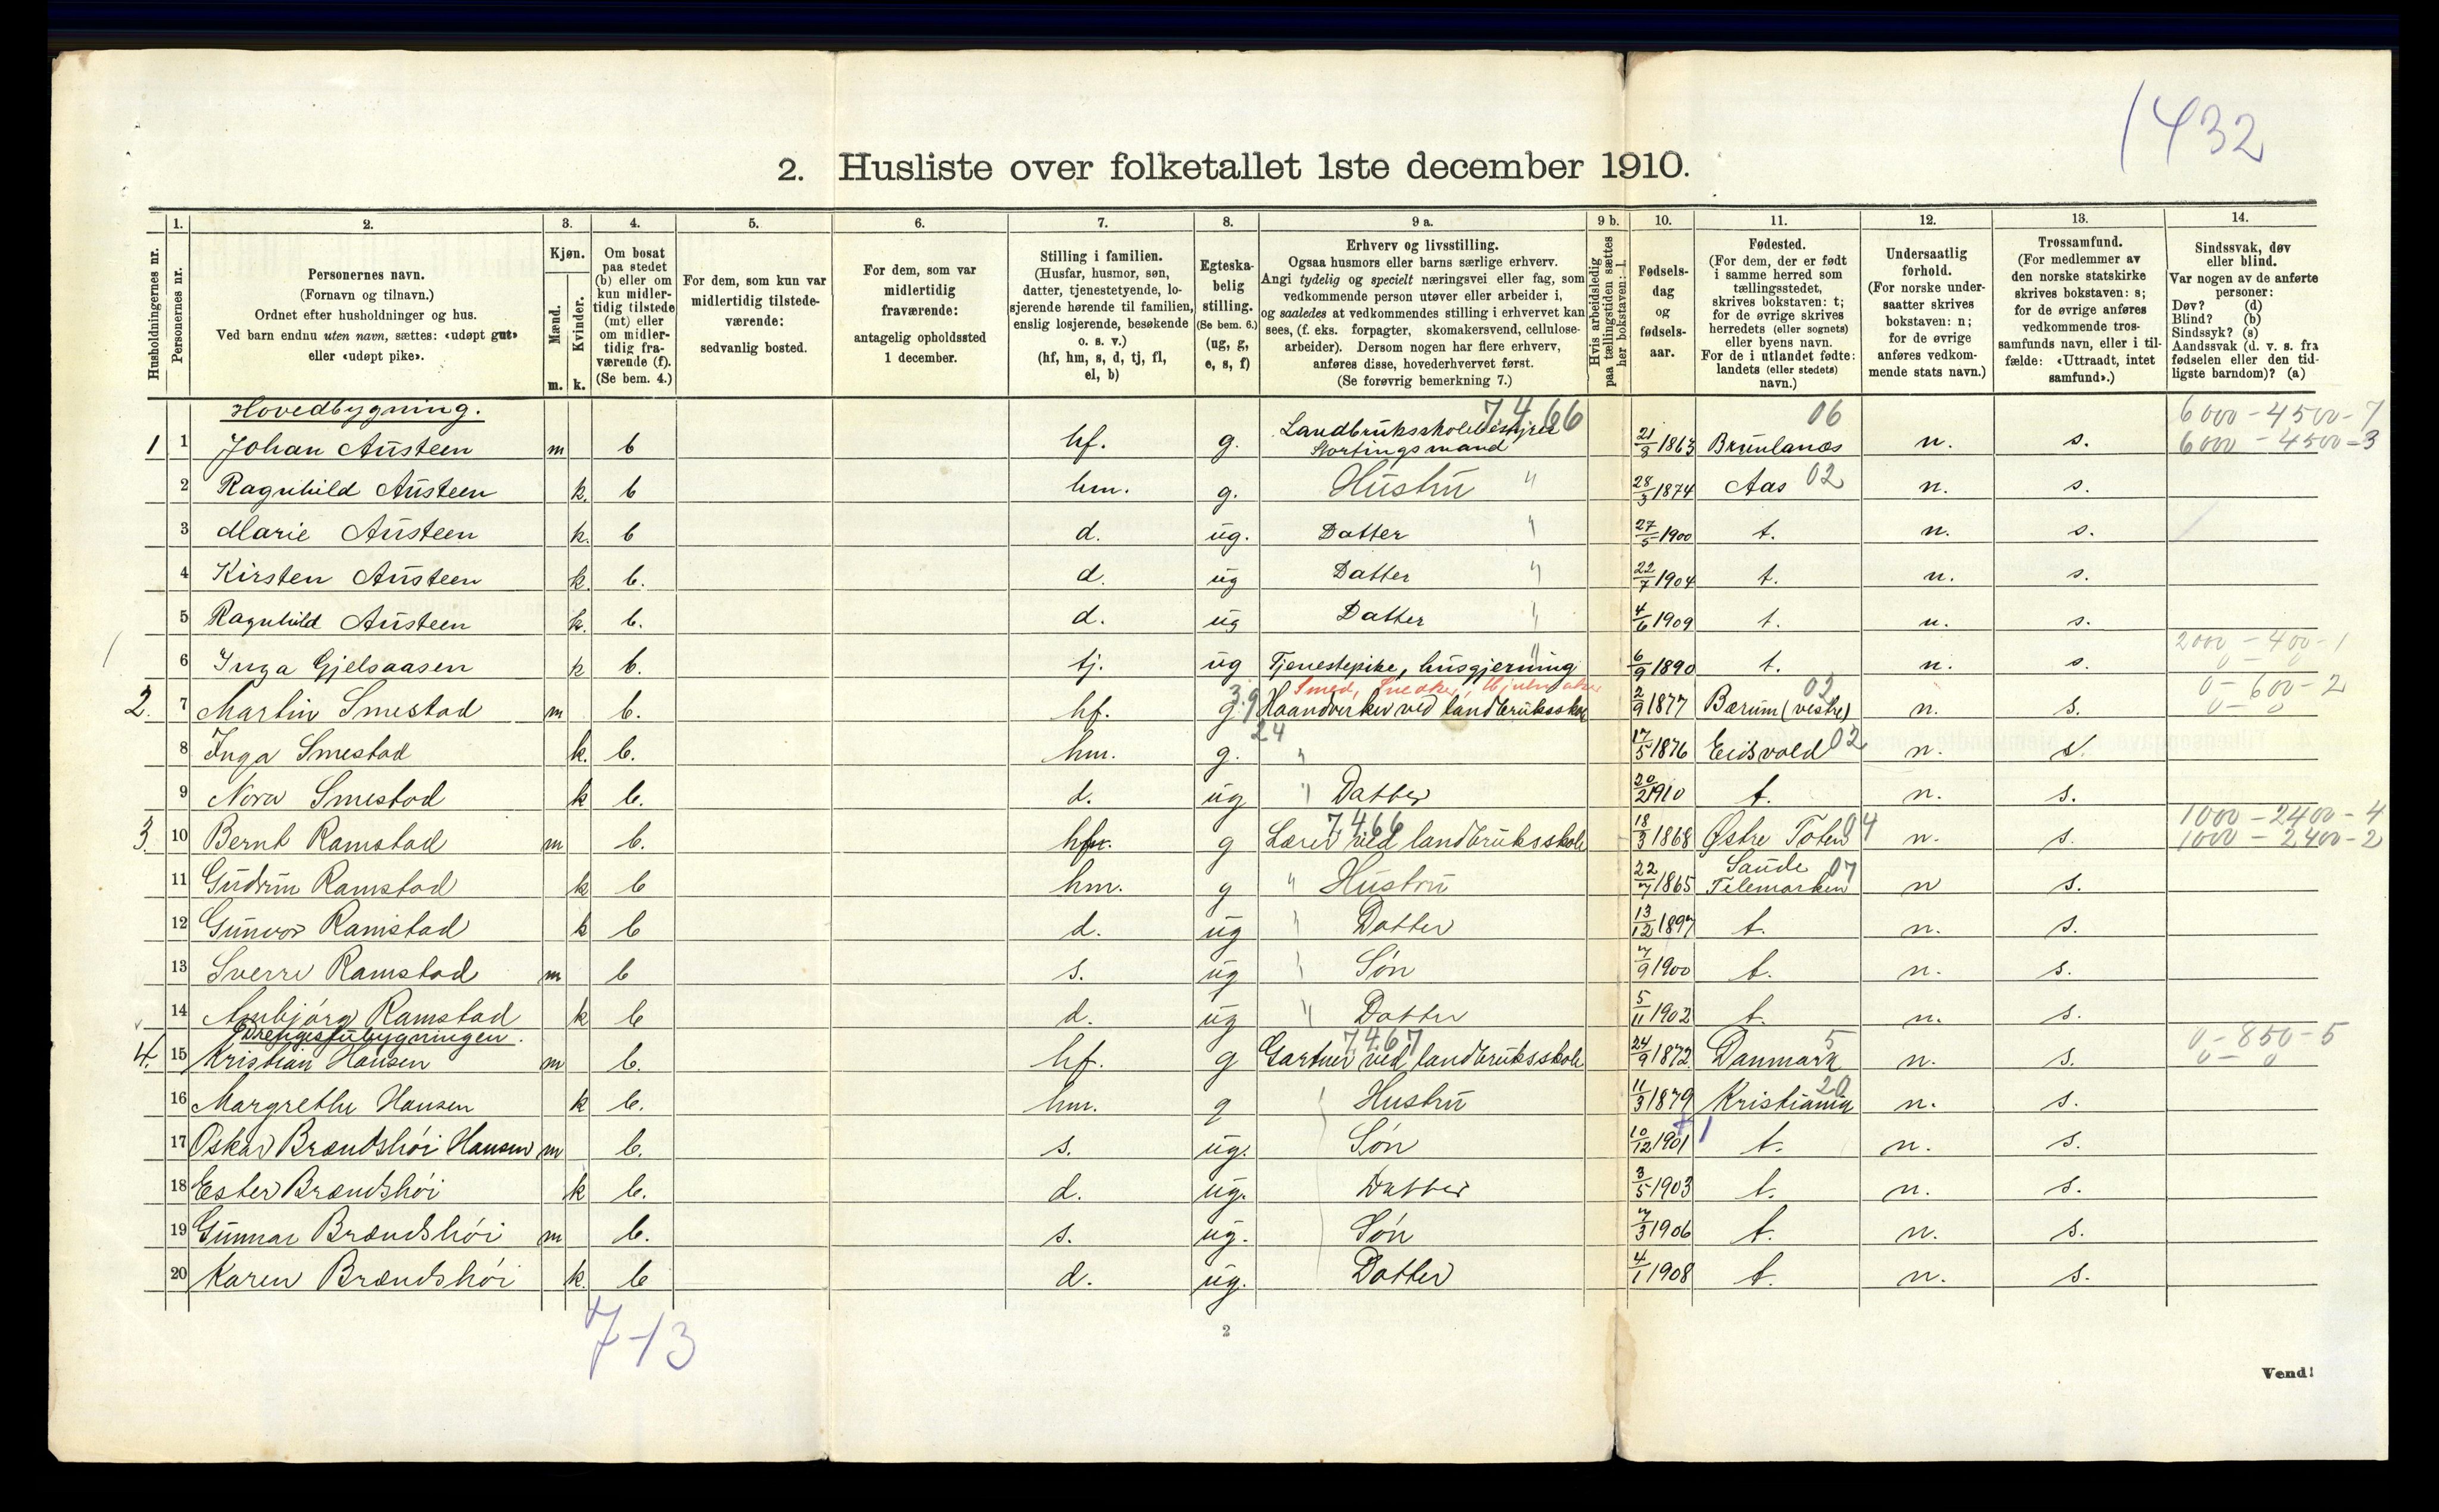 1432
2. Husliste over folketallet 1ste december 1910.
1. 2. 3. 4. 5. 6. 7. 8. 9 a. 9 b. 10. 11. 12. 13. 14.
Husholdningernes nr.
Personernes nr.
Personernes navn.
(Fornavn og tilnavn.)
Ordnet efter husholdninger og hus.
Ved barn endnu uten navn, sættes: «udøpt gut»
eller «udøpt pike».
Kjøn.
Mænd.
Kvinder.
m. k.
Om bosat
paa stedet
(b) eller om
kun midler-
tidig tilstede
(mt) eller
om midler-
tidig fra-
værende (f).
(Se bem. 4.)
For dem, som kun var
midlertidig tilstede-
værende:
sedvanlig bosted.
For dem, som var
midlertidig
fraværende:
antagelig opholdssted
1 december.
Stilling i familien.
(Husfar, husmor, søn,
datter, tjenestetyende, lo-
sjerende hørende til familien,
enslig losjerende, besøkende
o. s. v.)
(hf, hm, s, d, tj, fl,
el, b)
Egteska-
belig
stilling.
(Se bem. 6.)
(ug, g,
e, s, f)
Erhverv og livsstilling.
Ogsaa husmors eller barns særlige erhverv.
Angi tydelig og specielt næringsvei eller fag, som
vedkommende person utøver eller arbeider i,
og saaledes at vedkommendes stilling i erhvervet kan
sees, (f. eks. forpagter, skomakersvend, cellulose-
arbeider). Dersom nogen har flere erhverv,
anføres disse, hovederhvervet først.
(Se forøvrig bemerkning 7.)
Hvis arbeidsledig
paa tællingstiden sættes
her bokstaven: l.
Fødsels-
dag
og
fødsels-
aar.
Fødested.
(For dem, der er født
i samme herred som
tællingsstedet,
skrives bokstaven: t;
for de øvrige skrives
herredets (eller sognets)
eller byens navn.
For de i utlandet fødte:
landets (eller stedets)
navn.)
Undersaatlig
forhold.
(For norske under-
saatter skrives
bokstaven: n;
for de øvrige
anføres vedkom-
mende stats navn.)
Trossamfund.
(For medlemmer av
den norske statskirke
skrives bokstaven: s;
for de øvrige anføres
vedkommende tros-
samfunds navn, eller i til-
fælde: «Uttraadt, intet
samfund».)
Sindssvak, døv
eller blind.
Var nogen av de anførte
personer:
Døv? (d)
Blind? (b)
Sindssyk? (s)
Aandssvak (d. v. s. fra
fødselen eller den tid-
ligste barndom)? (a)
Hovedbygning. 7466 06 6000 - 4500 - 7
1 1 Johan Austeen m b hf. g. Landbruksskolebestyrer Stortingsmand 21/8 1863 Brunlanæs n. s. 6000 - 4500 - 3
2 Ragnhild Austeen k. b hm. g. Hustru " 28/3 1874 Aas 02 n. s.
3 Marie Austeen k. b d. ug. Datter " 27/5 1900 t. n. s.
4 Kirsten Austeen k. b. d. ug Datter " 22/7 1904 t. n. s.
5 Ragnhild Austeen k. b. d. ug Datter " 4/6 1909 t. n. s.
2000 - 400 - 1
6 Inga Gjelsaasen k b. tj. ug Tjenestepike, husgjerning 6/9 1890 t. n. s. 0 - 0
Smed, Snedker, Hjulmaker 02 0 - 600 - 2
2. 7 Martin Smestad m b. hf. g. 39 Haandverker ved landbruksskole 2/9 1877 Bærum (vestre) n. s. 0 - 0
24
8 Inga Smestad k. b. hm. g. " 17/5 1876 Eidsvold 02 n. s.
9 Nora Smestad k b. d. ug " Datter 20/2 1910 t. n. s.
7466 1000 - 2400 - 4
3. 10 Bernt Ramstad m b. hf. g Lærer ved landbruksskole 18/3 1868 Østre Toten 04 n. s. 1000 - 2400 - 2
11 Gudrun Ramstad k b hm. g " Hustru 22/7 1865 Saude Telemarken 07 n s.
12 Gunvor Ramstad k b d. ug " Datter 13/12 1897 t. n. s.
13 Sverre Ramstad m b s. ug " Søn 7/9 1900 t. n. s.
14 Aasbjørg Ramstad k b d. ug " Datter 5/11 1902 t. n. s.
Drengestubygningen. 7467 5 0 - 850 - 5
4. 15 Kristian Hansen m b. hf. g Gartner ved landbruksskole 24/9 1872 Danmark n. s. 0 - 0
16 Margrethe Hansen k b. hm. g " Hustru 11/3 1879 Kristiania 20 n. s.
17 Oskar Brændshøi Hansen m b. s. ug. Søn 10/12 1901 t. n. s.
18 Ester Brændshøi k b. d. ug. Datter 3/5 1903 t. n. s.
19 Gunnar Brændshøi m b. s. ug. Søn 7/3 1906 t. n. s.
20 Karen Brændshøi k. b d. ug. Datter 4/1 1908 t. n. s.
7-13
2
Vend!